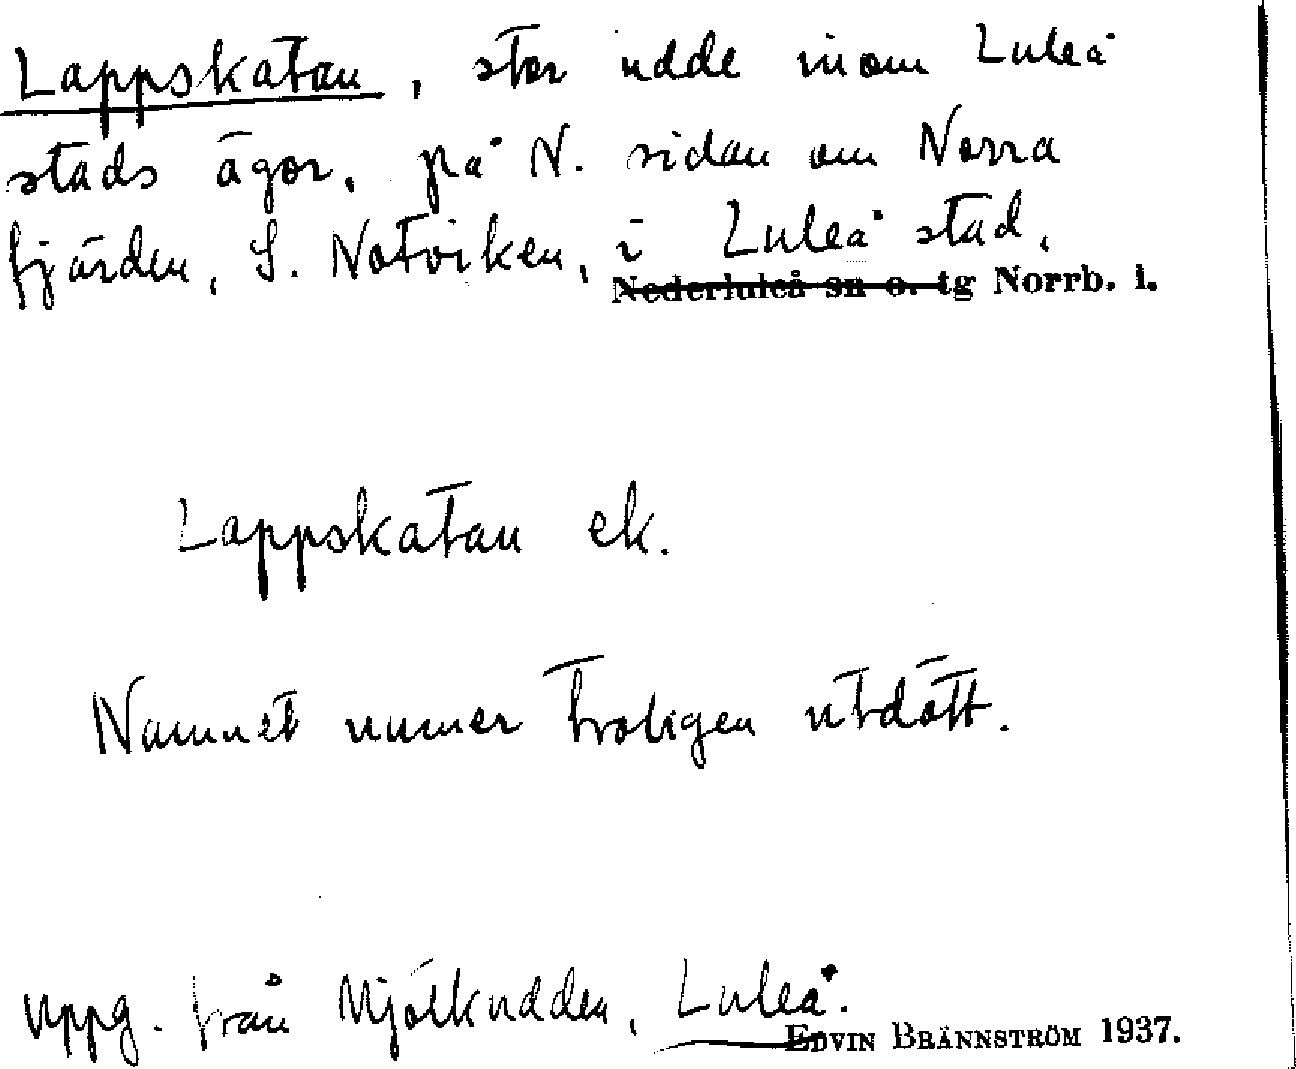 Lappskatan, stor udde inom Luleå
stads ägor, på N. sidan om Norra
fjärden, S. Notviken, i Luleå stad,
Nederluleå sn o. tg Norrb. l.
Lappskatan ek.
Namnet numer troligen utdött.
Uppg. från Mjölkudden, Luleå.
EDVIN BRÄNNSTRÖM 1937.